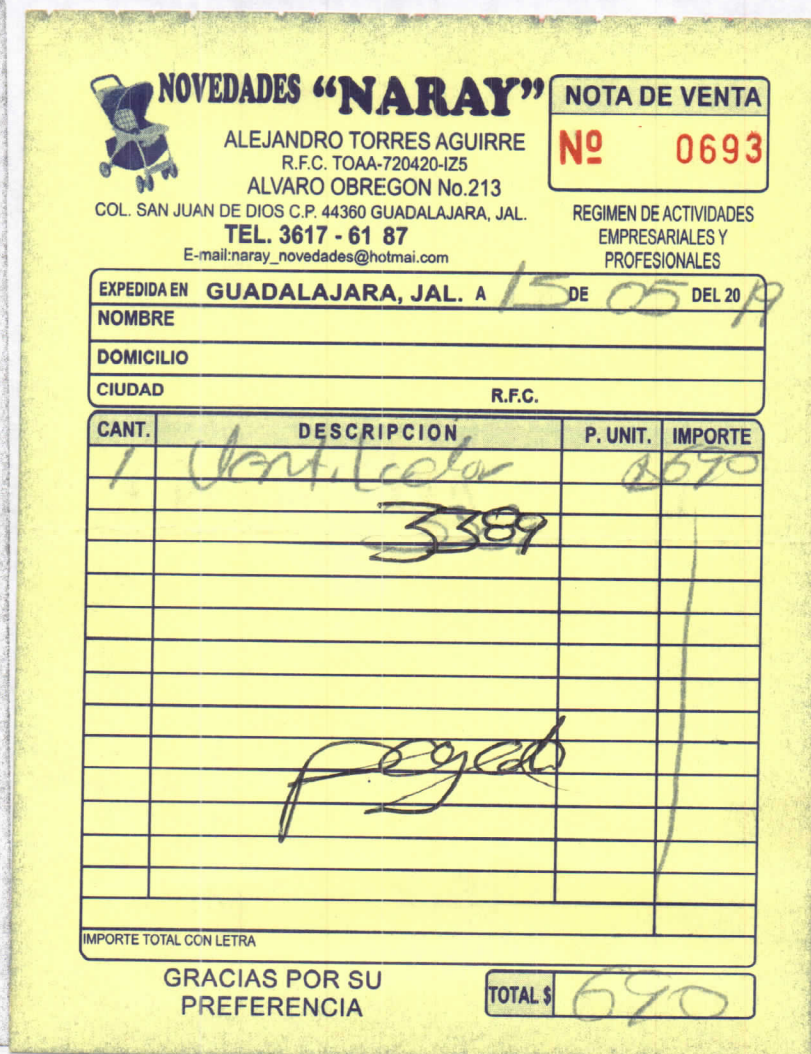 NOVEDADES "NARAY"
NOTA DE VENTA
Nº 0693
ALEJANDRO TORRES AGUIRRE
R.F.C. TOAA-720420-IZ5
ALVARO OBREGON No.213
COL. SAN JUAN DE DIOS C.P. 44360 GUADALAJARA, JAL.
TEL. 3617 - 61 87
E-mail:naray_novedades@hotmai.com
REGIMEN DE ACTIVIDADES
EMPRESARIALES Y
PROFESIONALES
EXPEDIDA EN GUADALAJARA, JAL. A 15 DE 05 DEL 2019
NOMBRE
DOMICILIO
CIUDAD R.F.C.
CANT. DESCRIPCION P. UNIT. IMPORTE
1 Ventilador $690
3389
pagado
IMPORTE TOTAL CON LETRA
GRACIAS POR SU
PREFERENCIA
TOTAL $ 690